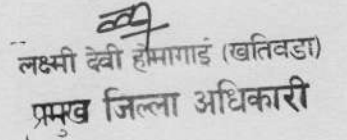 लक्ष्मी देवी हौमागाई (खतिवडा)
प्रमुख जिल्ला अधिकारी